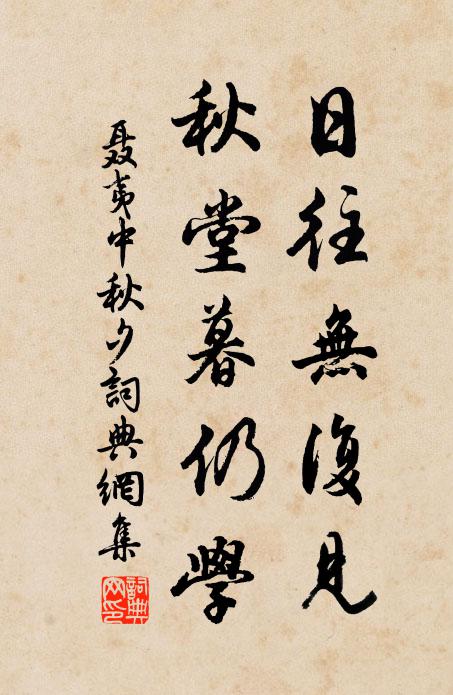 日往無復見
秋堂暮仍學
聂夷中秋夕詞典網集
詞典網印